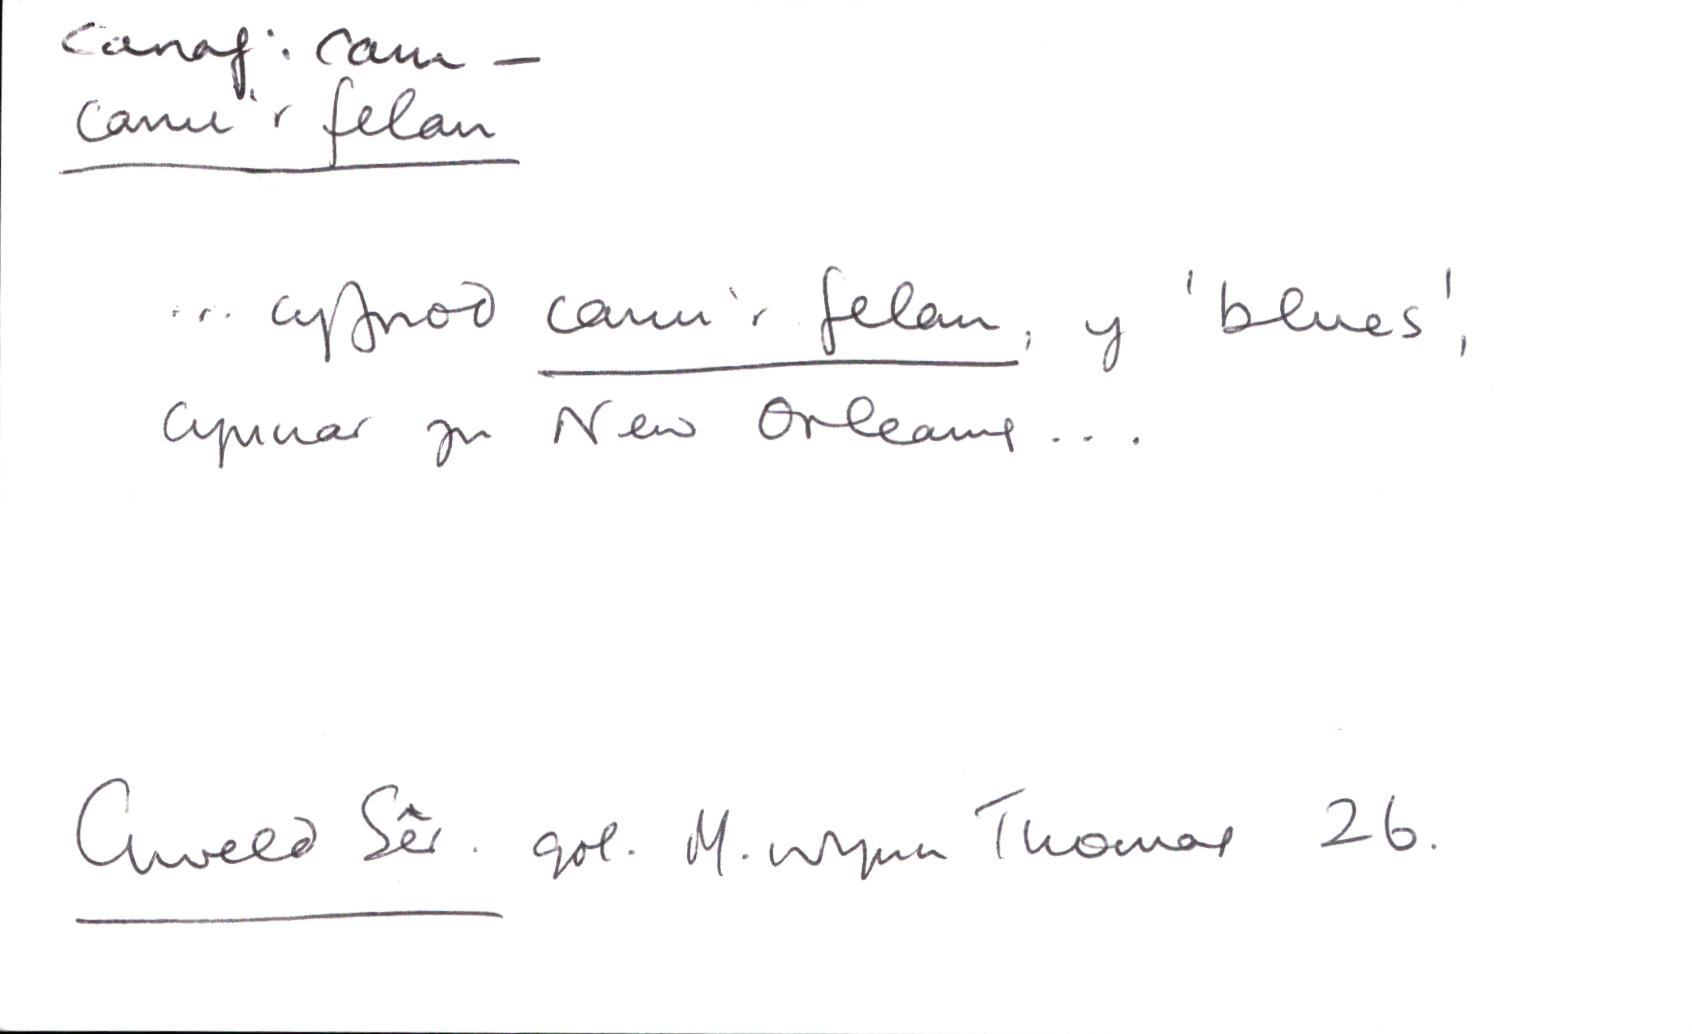 canaf: canu –
canu'r felan
... cyfnod canu'r felan, y 'blues',
cynnar yn New Orleans ...
Gweld Sêr. gol. M. Wynn Thomas 26.